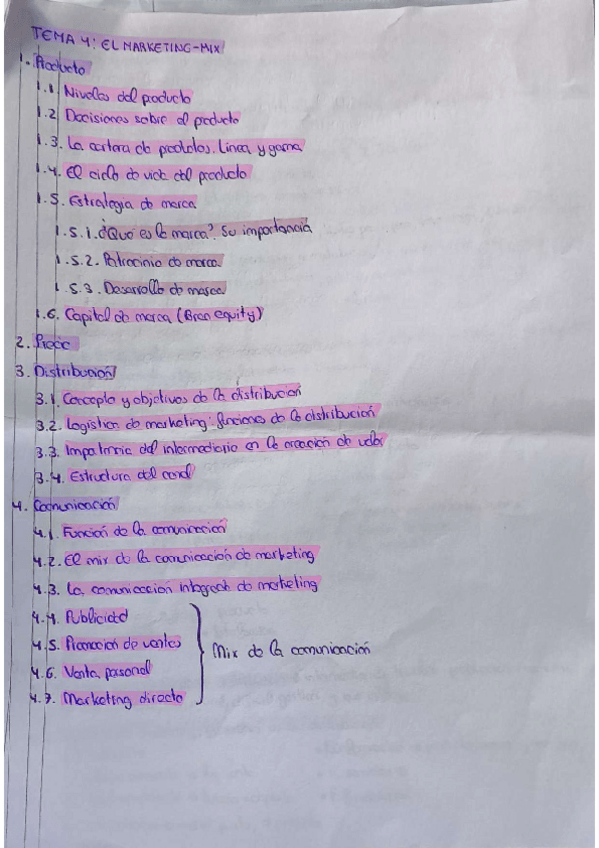 TEMA 4: EL MARKETING-MIX
1. Producto
1.1 Niveles del producto
1.2 Decisiones sobre el producto
1.3. La cartera de productos. Línea y gama
1.4. El ciclo de vida del producto
1.5. Estrategia de marca
1.5.1. ¿Qué es la marca? Su importancia
1.5.2. Patrocinio de marca
1.5.3. Desarrollo de marca
1.6. Capital de marca (Bran equity)
2. Precio
3. Distribución
3.1. Concepto y objetivos de la distribución
3.2. Logística de marketing: funciones de la distribución
3.3. Importancia del intermediario en la creación de valor
3.4. Estructura del canal
4. Comunicación
4.1. Función de la comunicación
4.2. El mix de la comunicación de marketing
4.3. La comunicación integrada de marketing
4.4. Publicidad
4.5. Promoción de ventas
Mix de la comunicación
4.6. Venta personal
4.7. Marketing directo